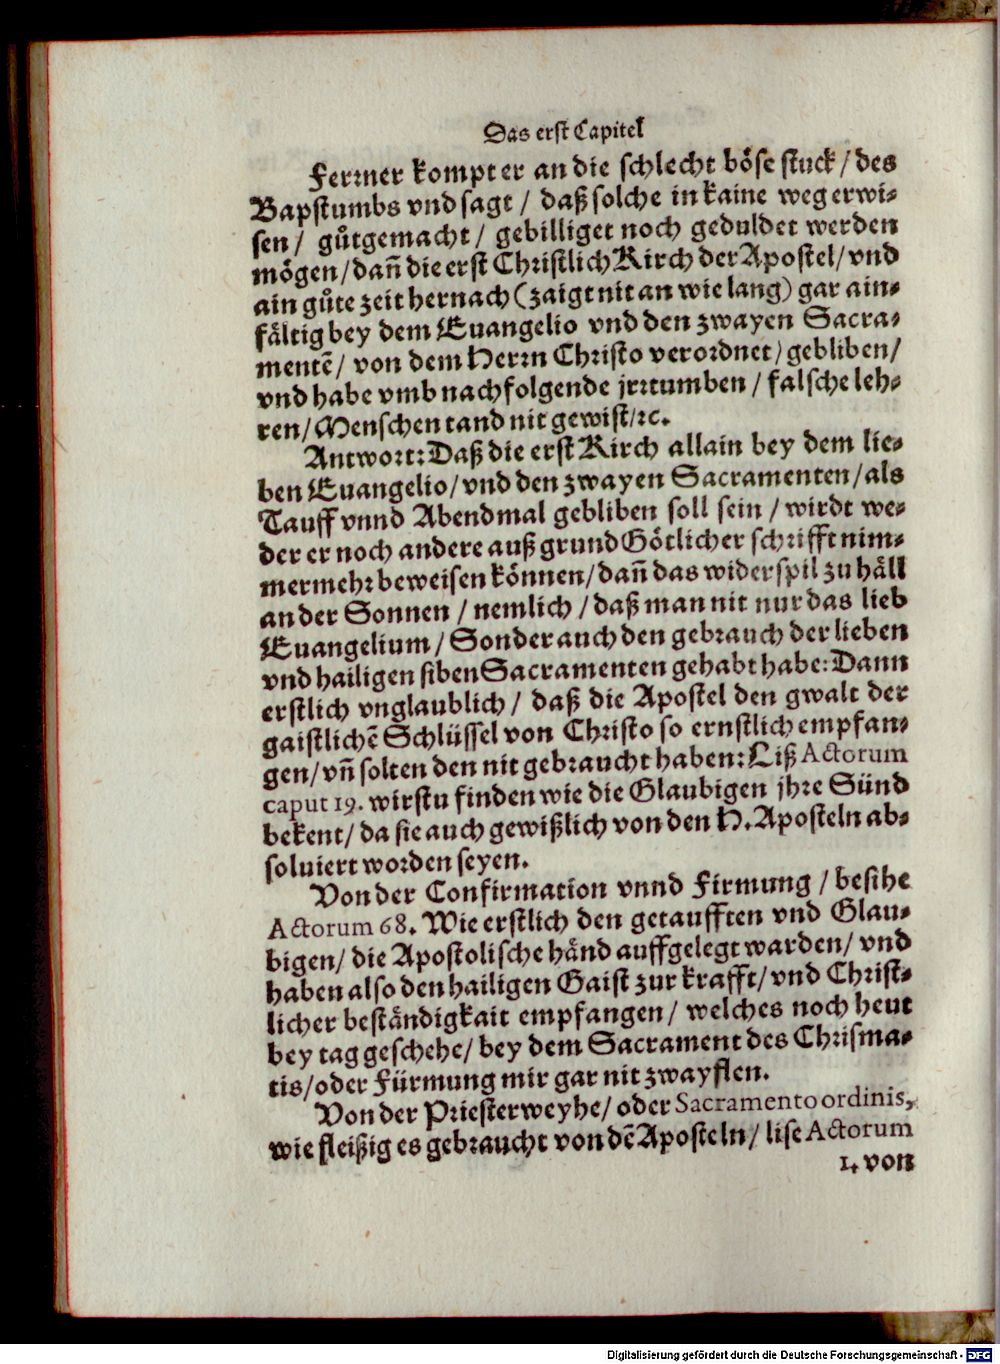 Das erst Capitel
Ferrner kompt er an die schlecht böse stuck / des
Bapstumbs vnd sagt / daß solche in kaine weg erwi-
sen / gůtgemacht / gebilliget noch geduldet werden
mögen / dañ die erst Christlich Kirch der Apostel / vnd
ain gůte zeit hernach (zaigt nit an wie lang) gar ain-
fältig bey dem Euangelio vnd den zwayen Sacra-
mentẽ / von dem Herrn Christo verordnet / gebliben /
vnd habe vmb nachfolgende jrrtumben / falsche leh-
ren / Menschen tand nit gewist / ꝛc.
Antwort: Daß die erst Kirch allain bey dem lie-
ben Euangelio / vnd den zwayen Sacramenten / als
Tauff vnnd Abendmal gebliben soll sein / wirdt we-
der er noch andere auß grund Götlicher schrifft nim-
mermehr beweisen können / dañ das widerspil zu häll
an der Sonnen / nemlich / daß man nit nur das lieb
Euangelium / Sonder auch den gebrauch der lieben
vnd hailigen siben Sacramenten gehabt habe: Dann
erstlich vnglaublich / daß die Apostel den gwalt der
gaistlichẽ Schlüssel von Christo so ernstlich empfan-
gen / vñ solten den nit gebraucht haben: Liß Actorum
caput 19. wirstu finden wie die Glaubigen jhre Sünd
bekent / da sie auch gewißlich von den H. Aposteln ab-
soluiert worden seyen.
Von der Confirmation vnnd Firmung / besihe
Actorum 68. Wie erstlich den getaufften vnd Glau-
bigen / die Apostolische händ auffgelegt warden / vnd
haben also den hailigen Gaist zur krafft / vnd Christ-
licher beständigkait empfangen / welches noch heut
bey tag geschehe / bey dem Sacrament des Chrisma-
tis / oder Fürmung mir gar nit zwayflen.
Von der Priesterweyhe / oder Sacramento ordinis,
wie fleißig es gebraucht von dẽ Aposteln / lise Actorum
14. von
Digitalisierung gefördert durch die Deutsche Forschungsgemeinschaft - DFG